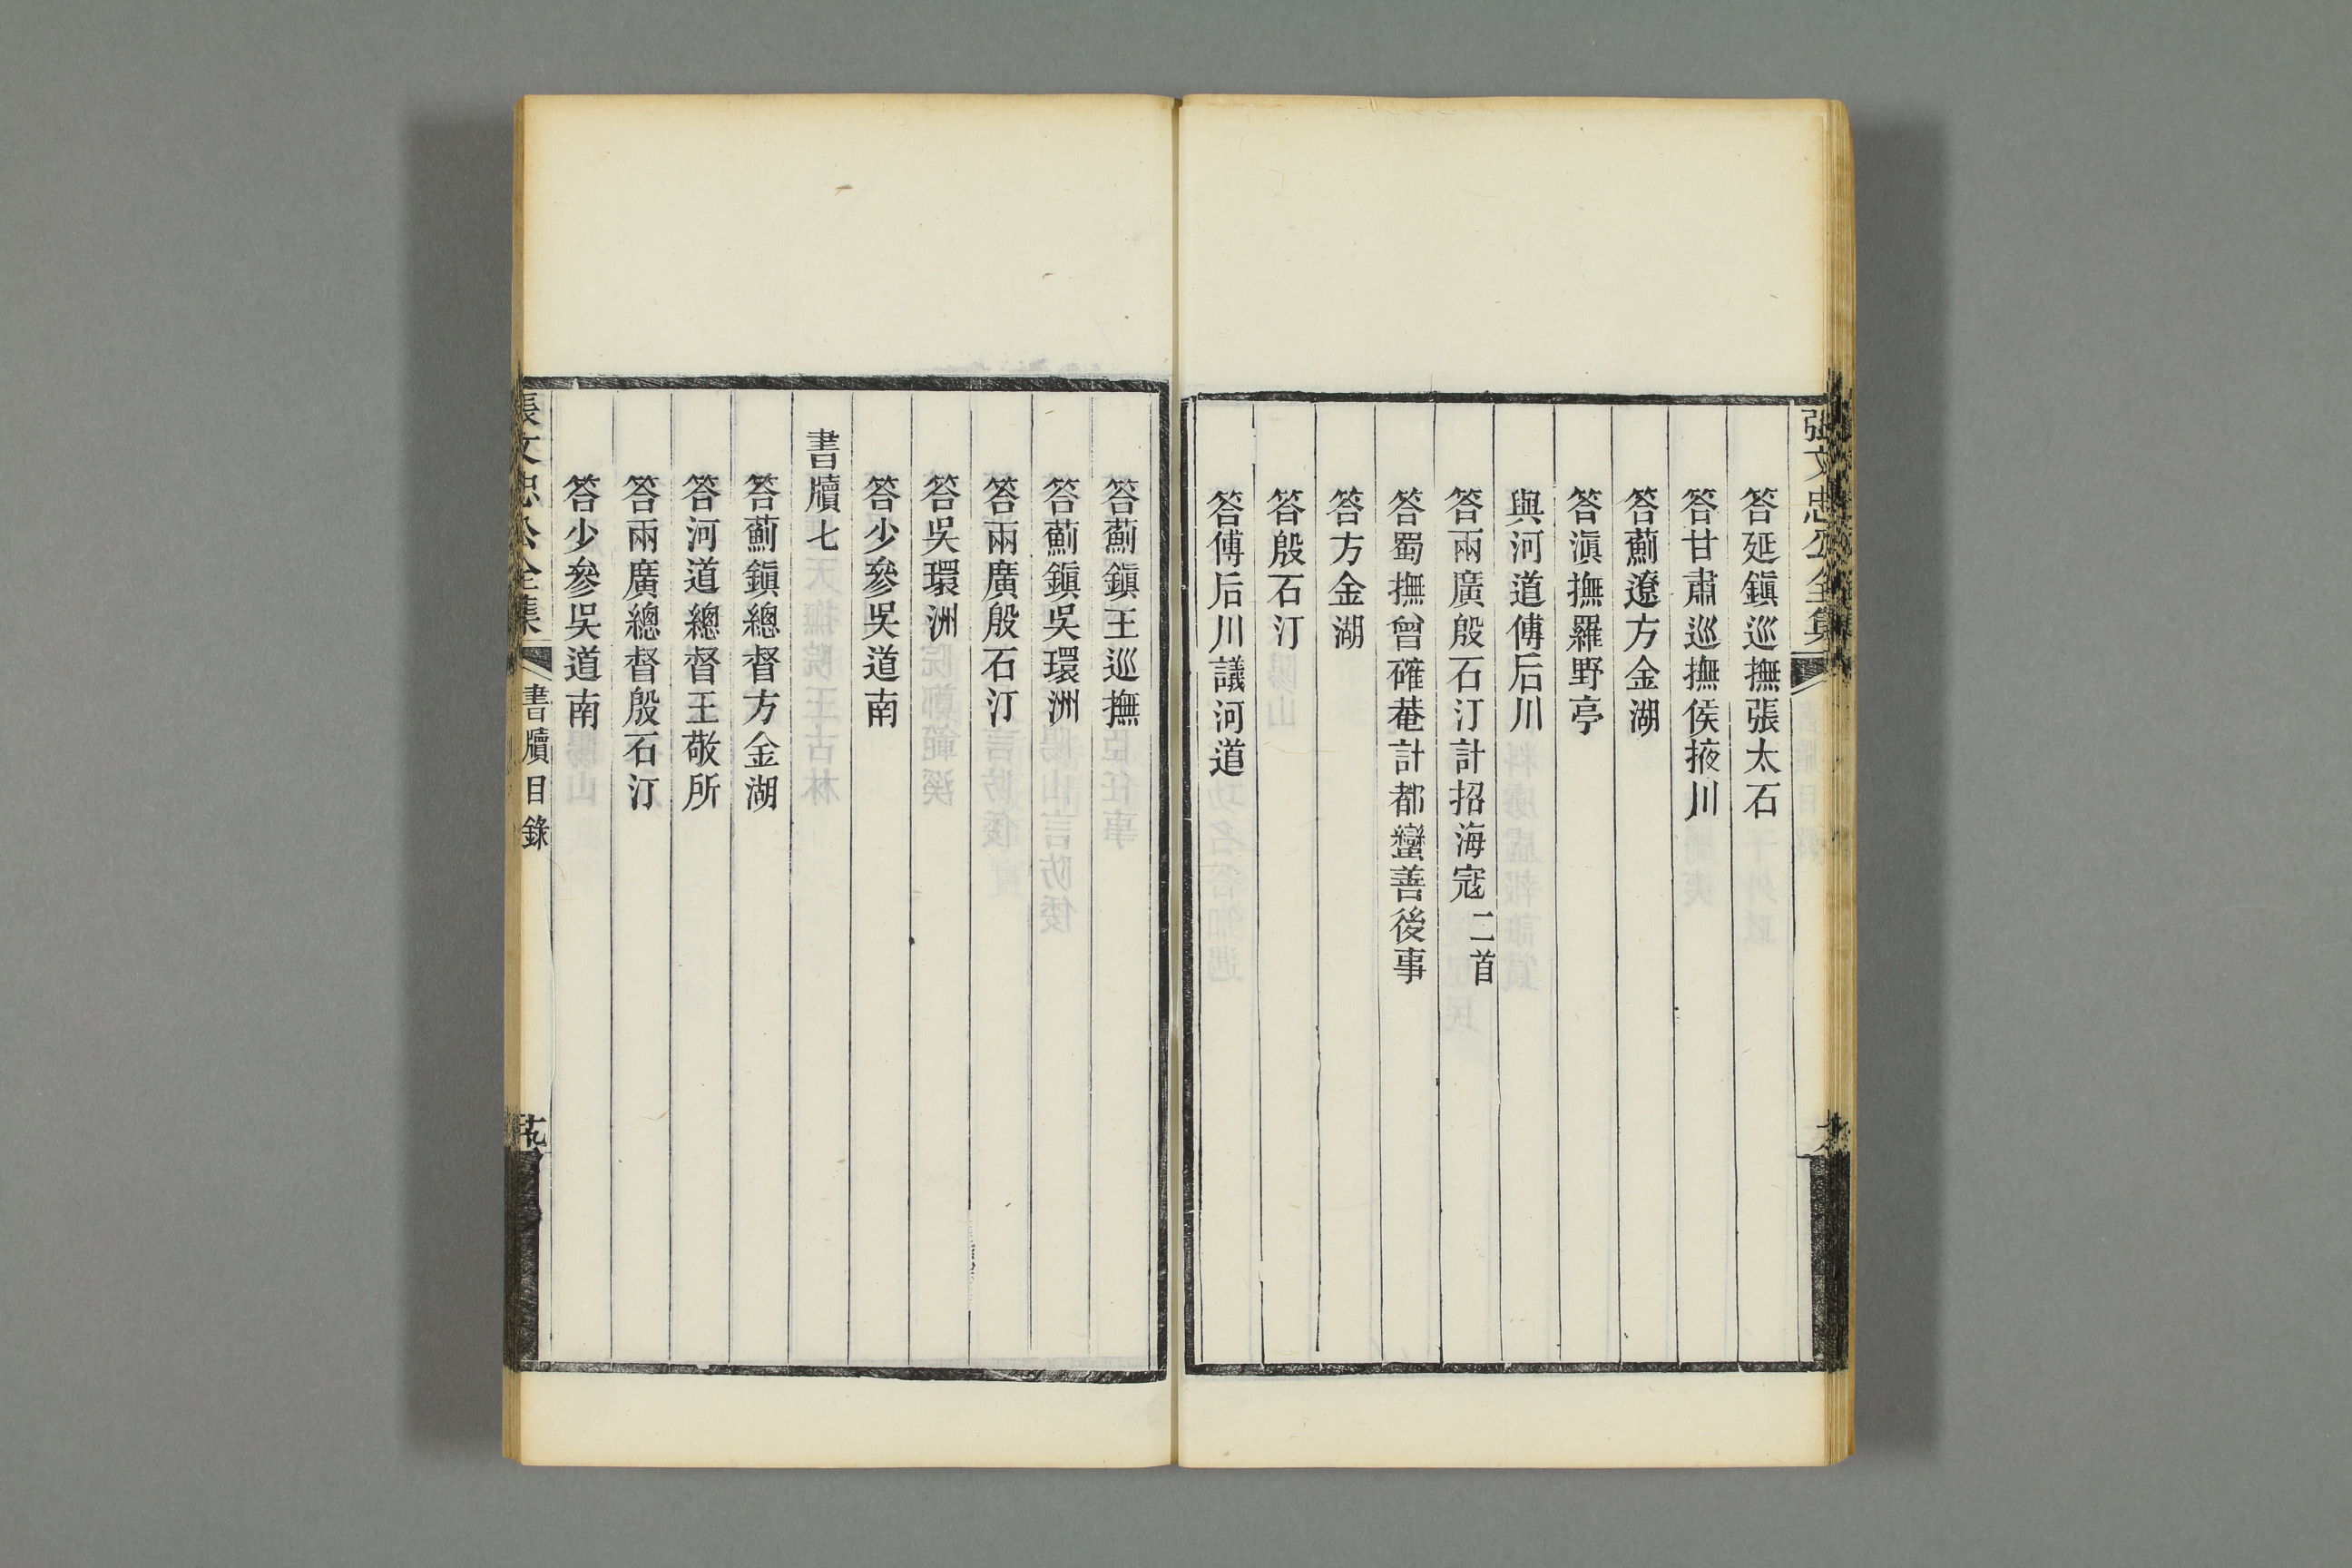 張文忠公全集
答延鎭巡撫張太石
答甘肅巡撫侯掖川
答薊遼方金湖
答滇撫羅野亭
與河道傅后川
答兩廣殷石汀計招海寇二首
答蜀撫曾確菴計都蠻善後事
答方金湖
答殷石汀
答傅后川議河道
答薊鎭王巡撫
答薊鎭吳環洲
答兩廣殷石汀
答吳環洲
答少參吳道南
書牘七
答薊鎭總督方金湖
答河道總督王敬所
答兩廣總督殷石汀
答少參吳道南
張文忠公全集 書牘目錄